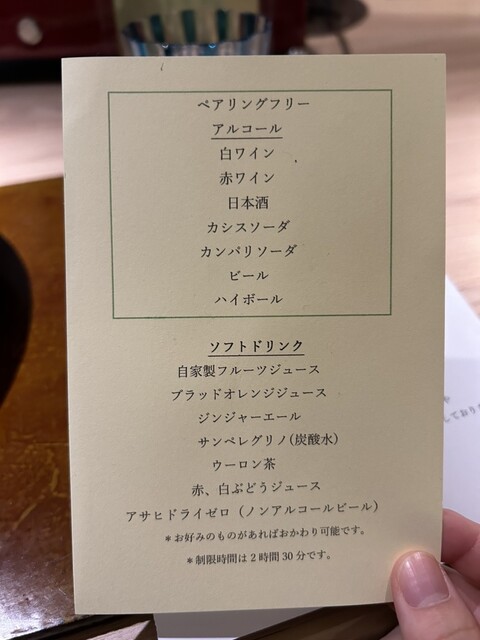 ペアリングフリー
アルコール
白ワイン
赤ワイン
日本酒
カシスソーダ
カンパリソーダ
ビール
ハイボール
ソフトドリンク
自家製フルーツジュース
ブラッドオレンジジュース
ジンジャーエール
サンペレグリノ(炭酸水)
ウーロン茶
赤、白ぶどうジュース
アサヒドライゼロ（ノンアルコールビール）
＊お好みのものがあればおかわり可能です。
＊制限時間は2時間30分です。
や
しており